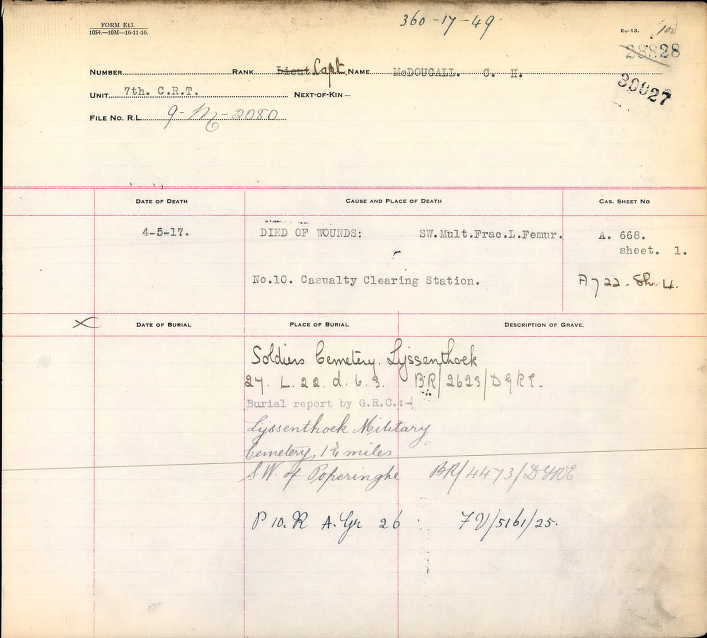 360-17-49
FORM E13.
1094.—10M—16-11-16.
E.-13.
100
28828
39927
NUMBER RANK Lieut. Capt. NAME McDOUGALL. C. H.
UNIT 7th. C.R.T. NEXT-OF-KIN—
FILE NO. R.L. 9-M-2080
DATE OF DEATH CAUSE AND PLACE OF DEATH CAS. SHEET NO
4-5-17. DIED OF WOUNDS: SW.Mult.Frac.L.Femur. A. 668.
sheet. 1.
No.10. Casualty Clearing Station. A722. Sh. 4.
X DATE OF BURIAL PLACE OF BURIAL DESCRIPTION OF GRAVE.
Soldiers Cemetery, Lyssenthoek
27. L. 22. d. 6. 3. BR/2623/DGRE.
Burial report by G.R.C.:-
Lyssenthoek Military
Cemetery, 1¾ miles
S.W. of Poperinghe BR/4473/DGRE
P 10. R A. Gr 26 7V/5161/25.